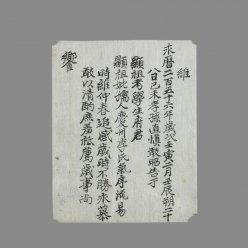 維
永曆二百五十六年歲次壬寅二月壬辰朔二十
八日己未孝孫道愼敢昭告于
顯祖考學生府君
顯祖妣孺人慶州李氏氣序流易
時維仲春追感歲時不勝永慕
敢以清酌庶羞祗薦歲事尙
饗